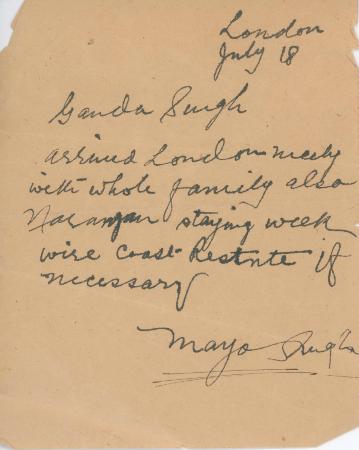 London
July 18
Ganda Singh
arrived London nicely
with whole family also
Naranjan staying week
wire Coast Restrnte if
necessary
Mayo Singh